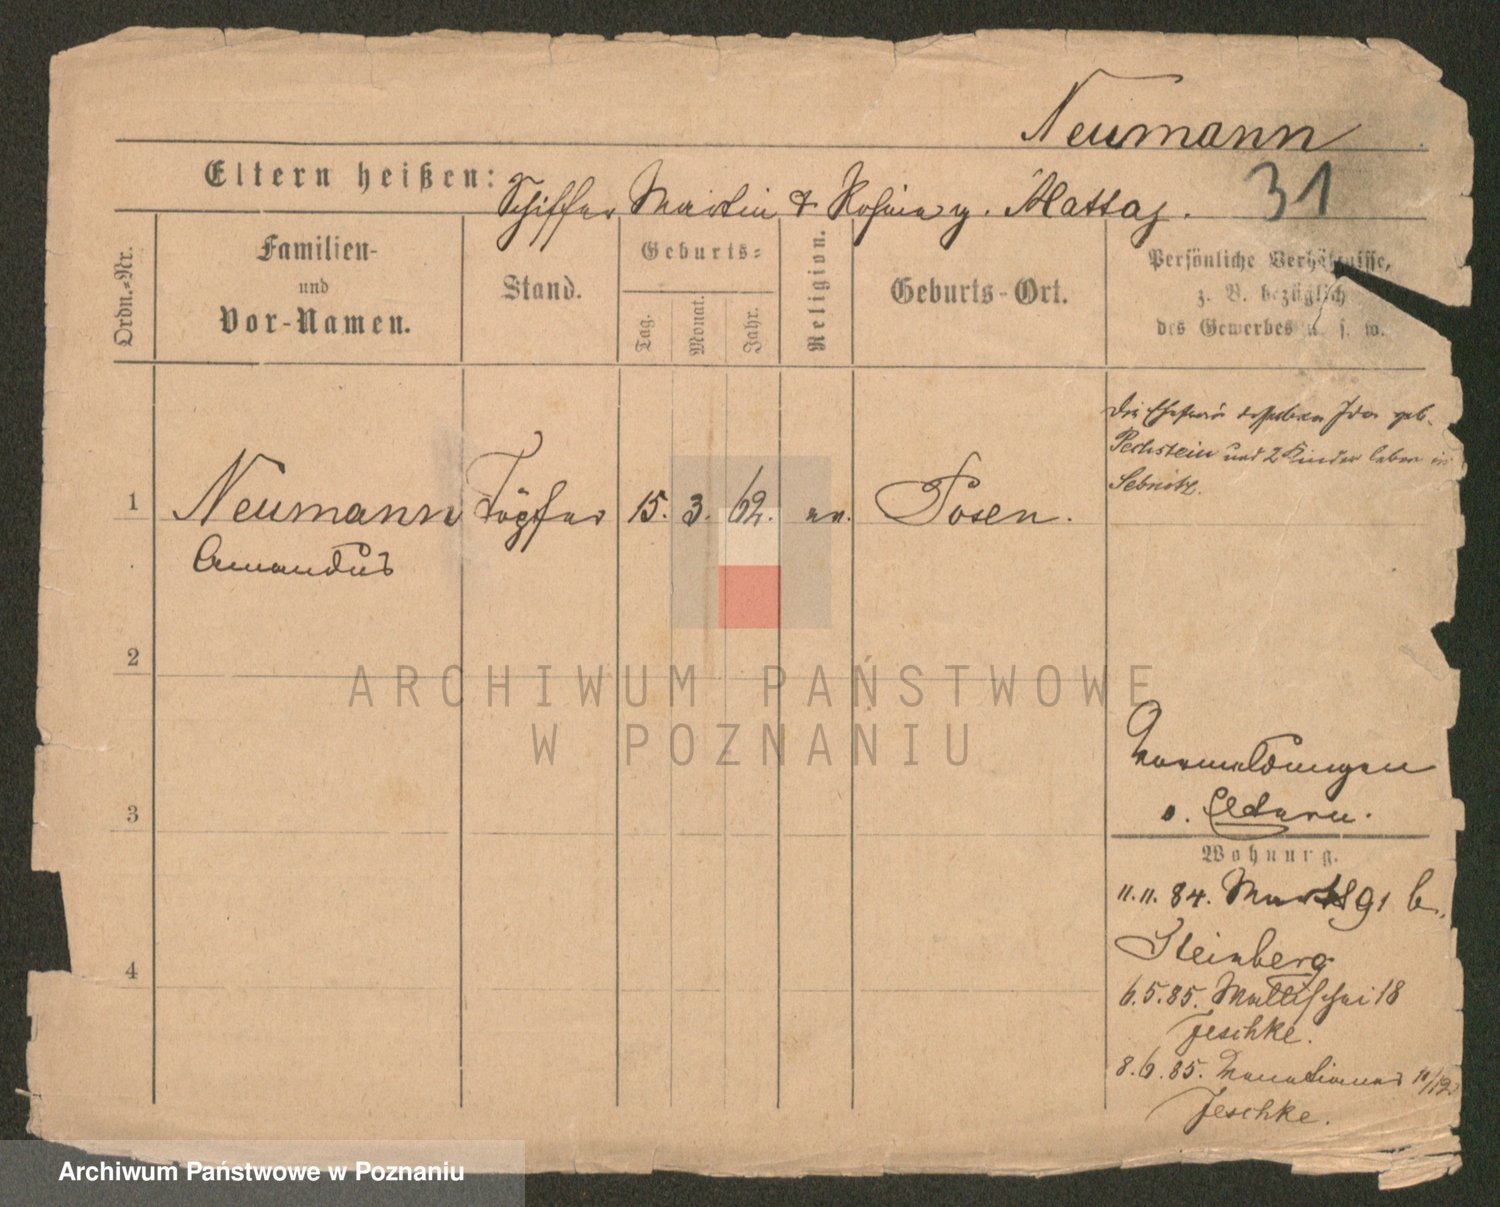 Neumann
Eltern heißen: Schiffer Martin & Rosina g. Mattaj.
31
Ordn.-Nr.
Familien-
und
Vor-Namen.
Stand.
Geburts-
Tag.
Monat.
Jahr.
Religion.
Geburts-Ort.
Persönliche Verhältnisse,
z. B. bezüglich
des Gewerbes u. s. w.
1
Neumann
Amandus
Töpfer
15.
3.
62.
ev.
Posen.
Die Ehefrau desselben Ida geb.
Pechstein und 2 Kinder leben in
Sebnitz.
2
3
4
Vormeldungen
s. Eltern.
Wohnung.
11.11.84. Markt 91 b.
Steinberg
6.5.85. Wallischei 18
Jeschke.
8.6.85. Venetianer 11/12
Jeschke.
ARCHIWUM PAŃSTWOWE
W POZNANIU
Archiwum Państwowe w Poznaniu